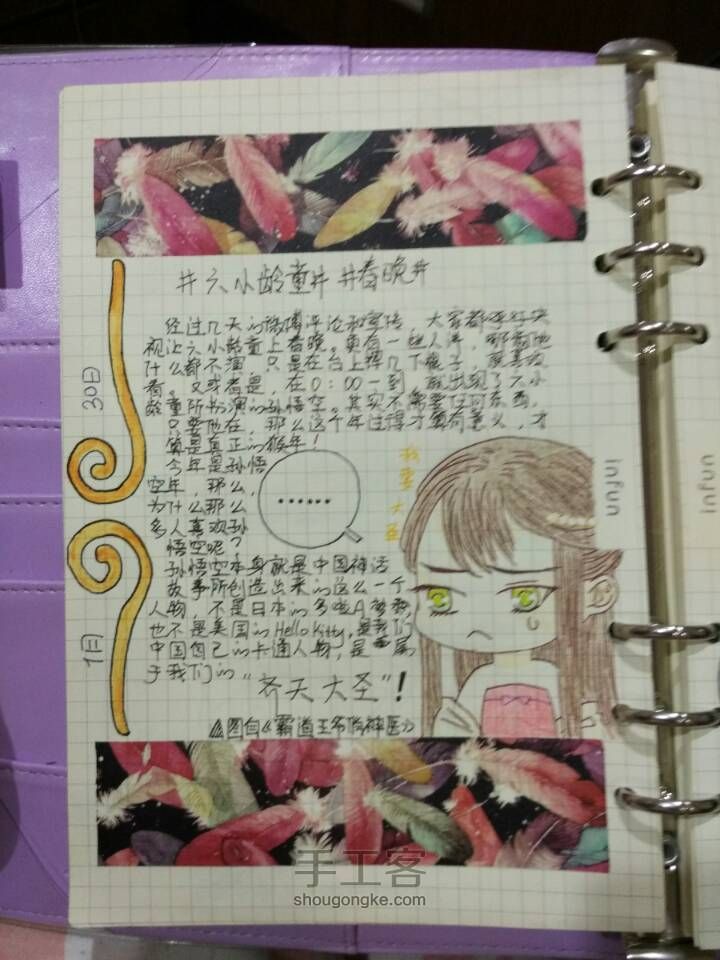 #六小龄童# #春晚#
经过几天的微博评论和宣传 大家都在
视让六小龄童上春晚。更有一些人讲，哪怕他
什么都不演，只是在台上挥几下棍子，
看。又或者是，在0:00一到，就出现了六小
龄童所扮演的孙悟空。其实不需要任何东西，
只要他在，那么这个年过得才算有意义，才
算是真正的猴年！
今年是孙悟
空年，那么，
为什么那么
多人喜欢孙
悟空呢？
孙悟空本身就是中国神话
故事所创造出来的这么一个
人物，不是日本的多啦A梦
也不是美国的Hello Kitty，是我们
中国自己的卡通人物，是 属
于我们的
“齐天大圣”！
图自《霸道王爷俏神医》
......
我要大圣
30日
1日
infun
infun
手工客
shougongke.com